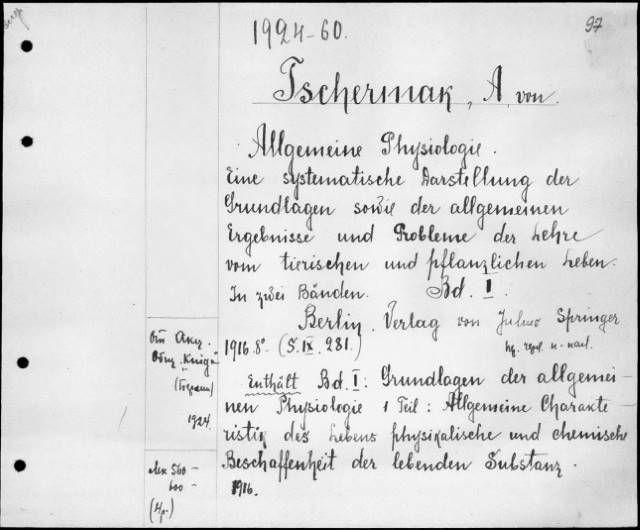 1924-60.
97
Tschermak, A. von.
Allgemeine Physiologie.
Eine systematische Darstellung der
Grundlagen sowie der allgemeinen
Ergebnisse und Probleme der Lehre
vom tierischen und pflanzlichen Leben.
In zwei Bänden. Bd. I.
Berlin. Verlag von Julius Springer
1916. 8°. (S. IX. 281.)
Enthält Bd. I: Grundlagen der allgemei-
nen Physiologie 1 Teil: Allgemeine Charakte
ristik des Lebens physikalische und chemische
Beschaffenheit der lebenden Substanz.
1916.
"Kniga"
1924.
560 -
600 -